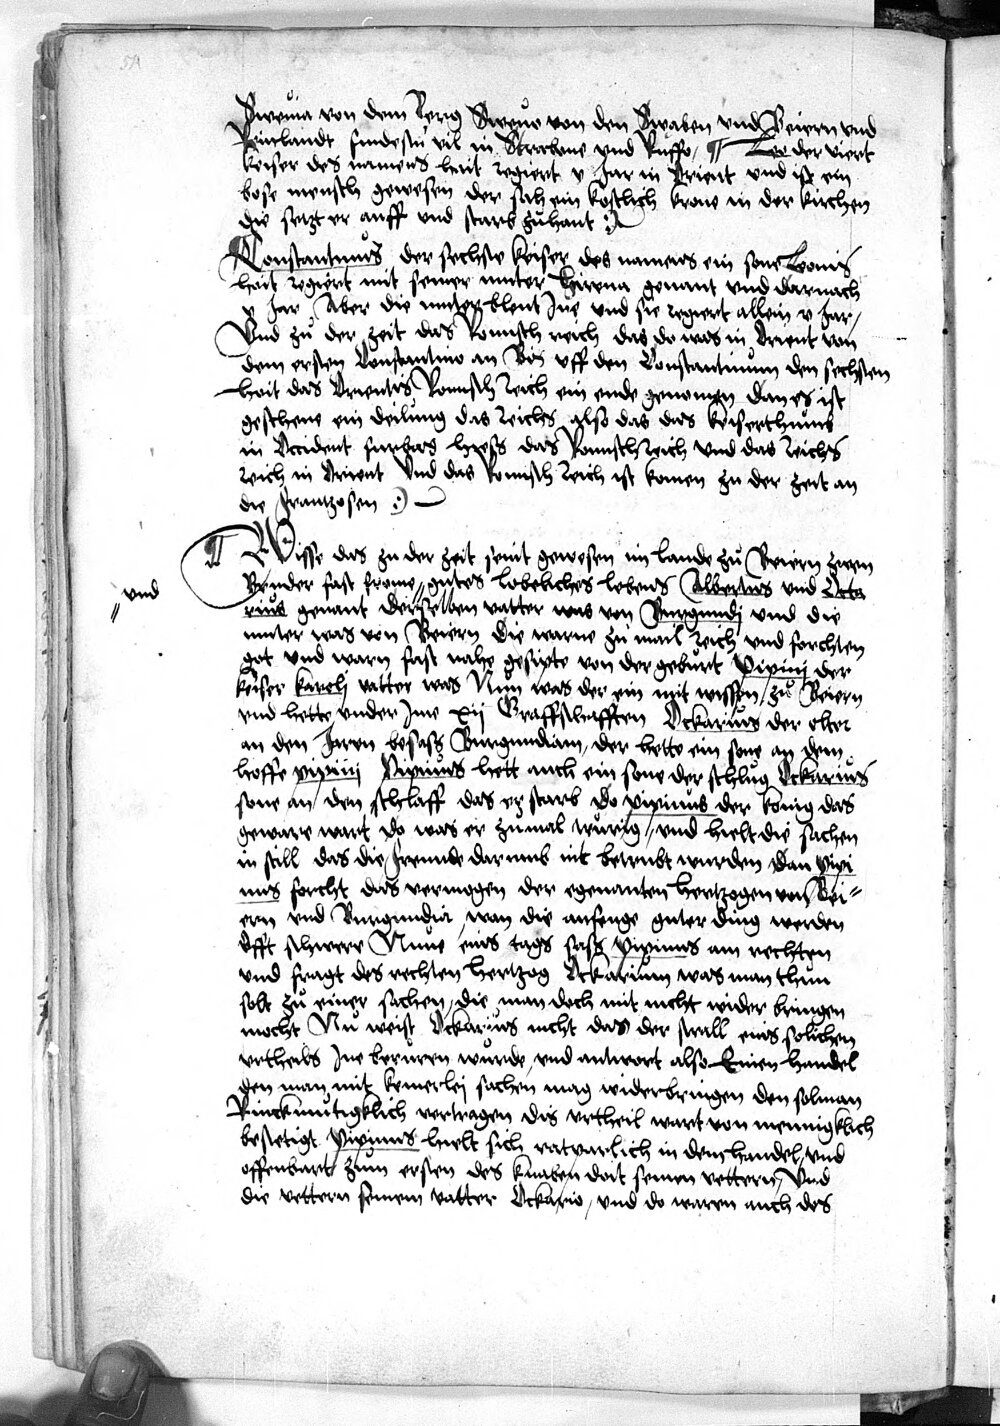 Swevia von dem Berg Swevo von den Swaben vnd Beiern vnd
Reinlandt findestu vil in Strabone vnd Ruffo / ¶ Leo der viert
keiser des namens hait regiert v Jar in Orient vnd ist ein
bose mensch gewesen der sah ein kostlich krone in der kirchen
die setzt er auff vnd starb zuhant :~
Constantinus der sechste keiser des namens ein sone Leonis
hait regiert mit seiner muter Hirena genant vnd darnach
v Jar Aber die muter blent Ine vnd sie regiert allein v Jar /
Vnd zu der zeit das Romisch reich das do was in Orient von
dem ersten Constantino an Bis vff den Constantinum den sechsten
hait das Orientis Romisch Reich ein ende genomen dan es ist
geschene ein deilung das Reichs also das das keiserthumb
in Occident furbas hiess das Romisch Reich vnd das Reichs
Reich in Orient Vnd das Romisch Reich ist komen zu der zeit an
die frantzosen :) —
¶ Wisse das zu der zeit seint gewesen im lande zu Beiern zwen
Bruder fast frome gutes lobeliches lebens Albertus vnd Octa
"vnd
rius genant derselben vatter was von Burgundi vnd die
muter was von Beiern Die warne zu mail reich vnd forchten
got vnd warn fast nahe gesipte von der geburt Pipini der
keiser karoli vatter was Nun was der ein mit wissen zu Beiern
vnd hette vnder Ime xij Graffschafften Ockarius der elter
an den Jaren besass Burgundiam, der hette ein sone an dem
hoffe pipini Pipinus hett auch ein sone der schlug Ockarius
sone an den schlaff das er starb do pipinus der konig das
gewarr wart do was er zumal trurig, vnd hielt die sachen
in still das die freunde darumb nit betrubt wurden dan pipi
nus forcht das vermogen der egenanten hertzogen von Bei=
ern vnd Burgundia, wan die anfenge guter ding werden
Offt schwere Nune eins tags sass pipinus am rechten
vnd fragt des rechten hertzog Ockarium was man thun
solt zu einer sachen, die man doch mit nicht wider bringen
mocht Nu weist Ockarius nicht das der stall eins solichen
vrtheils Ine beruren wurde, vnd antwort also Einen handel
den man mit keinerlej sachen mag widerbringen den solman
Ringkmutigklich vertragen dis vrtheil wart von mennigklich
bestetigt Pipinus hielt sich ratbarlich in dem handel, vnd
offenbart zum ersten des knaben doit seinen vettern, Vnd
die vettern seinem vatter Ockario, vnd do waren auch des